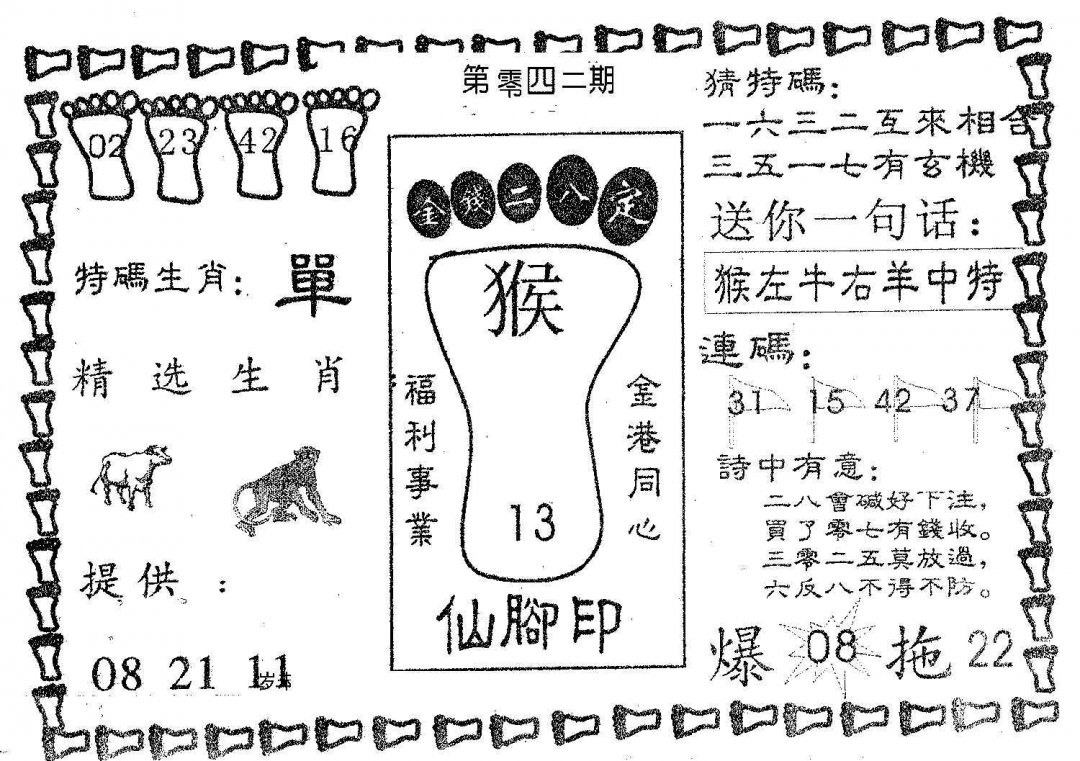 第零四二期
02 23 42 16
特碼生肖: 單
精选生肖
提供:
08 21 11
金錢二八定
猴
福利事業
金港同心
13
仙腳印
猜特碼:
一六三二互來相合
三五一七有玄機
送你一句话:
猴左牛右羊中特
連碼:
31 15 42 37
詩中有意:
二八會碱好下注,
買了零七有錢收。
三零二五莫放過,
六反八不得不防。
爆 08 拖 22